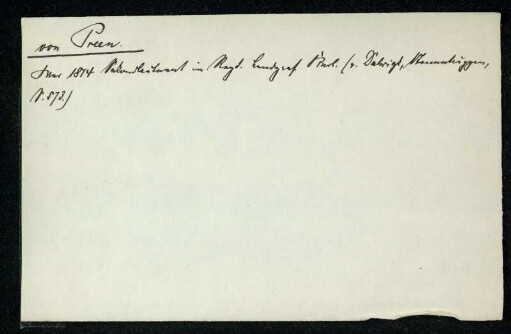 von Preen.
War 1814 Sekondleutnant im Regt. Landgraf Karl. (v. Dalwigk, Stammtruppen,
S. 573.)